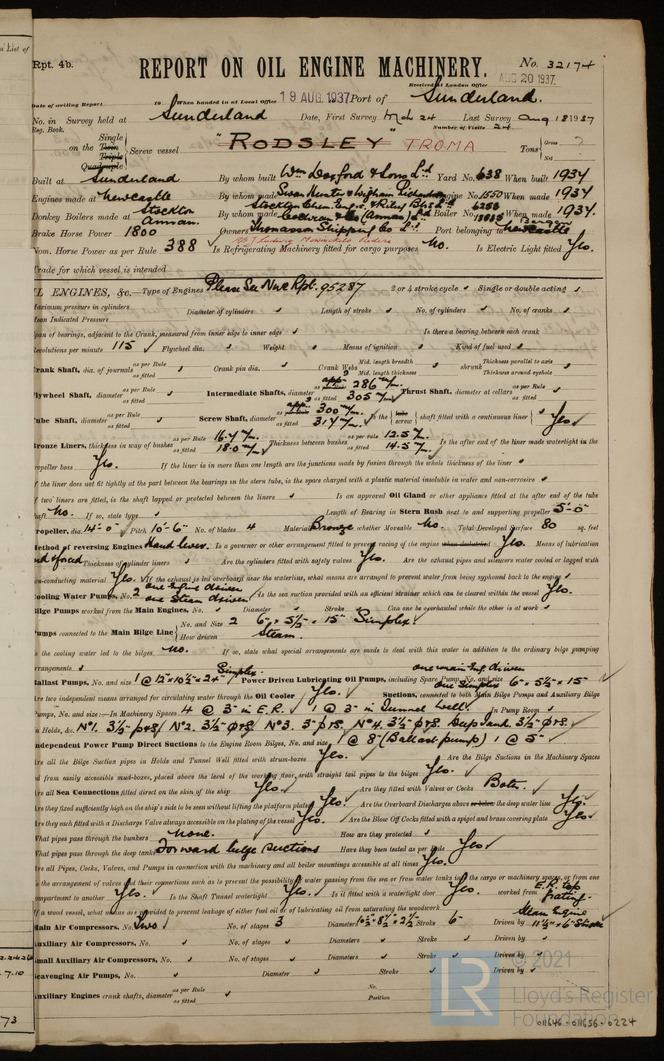 Rpt. 4b.
REPORT ON OIL ENGINE MACHINERY.
No. 32174
Received at London Office AUG 20 1937
Date of writing Report 19 When handed in at Local Office 19 AUG. 1937 Port of Sunderland.
No. in Reg. Book. Survey held at Sunderland Date, First Survey Mch 24 Last Survey Aug 18 1937
Number of Visits 24
on the Single Twin Triple Quadruple Screw vessel "RODSLEY" TROMA Tons Gross ? Net
Built at Sunderland By whom built Wm Doxford & Sons Ld. Yard No. 638 When built 1934
Engines made at Newcastle By whom made Swan Hunter & Wigham Richardson Engine No. 1550 When made 1934
Donkey Boilers made at Stockton Annan. By whom made Stockton Chem. Engrs & Riley Blrs Ld Cochran & Co (Annan) Ld Boiler No. 6258 When made 1934.
Brake Horse Power 1800 Owners Thomasson Shipping Co Ld. Port belonging to Newcastle Bergen
Nom. Horse Power as per Rule 388 Is Refrigerating Machinery fitted for cargo purposes No. Is Electric Light fitted Yes.
Trade for which vessel is intended
OIL ENGINES, &c.—Type of Engines Please See Nwc Rpt. 95287 2 or 4 stroke cycle Single or double acting
Maximum pressure in cylinders Diameter of cylinders Length of stroke No. of cylinders No. of cranks
Mean Indicated Pressure
Span of bearings, adjacent to the Crank, measured from inner edge to inner edge Is there a bearing between each crank
Revolutions per minute 115 Flywheel dia. Weight Means of ignition Kind of fuel used
Crank Shaft, dia. of journals as per Rule as fitted Crank pin dia. Crank Webs Mid. length breadth Mid. length thickness shrunk Thickness parallel to axis Thickness around eyehole
Flywheel Shaft, diameter as per Rule as fitted Intermediate Shafts, diameter appd 286 m/m as fitted 305 m/m Thrust Shaft, diameter at collars as per Rule as fitted
Tube Shaft, diameter as per Rule as fitted Screw Shaft, diameter appd 300 m/m as fitted 314 m/m Is the tube screw shaft fitted with a continuous liner Yes
Bronze Liners, thickness in way of bushes as per Rule 16.4 7m. as fitted 18.0 7m. Thickness between bushes as per rule 12.5 7m. as fitted 14.5 7m. Is the after end of the liner made watertight in the
propeller boss Yes. If the liner is in more than one length are the junctions made by fusion through the whole thickness of the liner
If the liner does not fit tightly at the part between the bearings in the stern tube, is the space charged with a plastic material insoluble in water and non-corrosive
If two liners are fitted, is the shaft lapped or protected between the liners Is an approved Oil Gland or other appliance fitted at the after end of the tube
shaft No. If so, state type Length of Bearing in Stern Bush next to and supporting propeller 5'-0"
Propeller, dia. 14'-0" Pitch 10'-6" No. of blades 4 Material Bronze whether Moveable No. Total Developed Surface 80 sq. feet
Method of reversing Engines Hand lever. Is a governor or other arrangement fitted to prevent racing of the engine when declutched Yes. Means of lubrication
and forced Thickness of cylinder liners Are the cylinders fitted with safety valves Yes. Are the exhaust pipes and silencers water cooled or lagged with
non-conducting material Yes. If the exhaust is led overboard near the waterline, what means are arranged to prevent water from being syphoned back to the engine
Cooling Water Pumps, No. 2 one Engine driven one Steam driven Is the sea suction provided with an efficient strainer which can be cleared within the vessel Yes.
Bilge Pumps worked from the Main Engines, No. Diameter Stroke Can one be overhauled while the other is at work
Pumps connected to the Main Bilge Line No. and Size 2 6" × 5½" × 15" Simplex How driven Steam.
Is the cooling water led to the bilges No. If so, state what special arrangements are made to deal with this water in addition to the ordinary bilge pumping
arrangements
Ballast Pumps, No. and size 1 @ 12" × 10½" × 24" Simplex. Power Driven Lubricating Oil Pumps, including Spare Pump, No. and size one main Eng. driven one Simplex 6" × 5½" × 15"
Are two independent means arranged for circulating water through the Oil Cooler Yes. Suctions, connected to both Main Bilge Pumps and Auxiliary Bilge
Pumps, No. and size:—In Machinery Spaces 4 @ 3" in E.R. 1 @ 3" in Tunnel Well In Pump Room
In Holds, &c. No 1. 3½" p&s No 2. 3½" p&s. No 3. 3" p&s. No 4. 3½" p&s. Deep tank. 3½" p&s.
Independent Power Pump Direct Suctions to the Engine Room Bilges, No. and size 1 @ 8" (Ballast pump) 1 @ 5"
Are all the Bilge Suction pipes in Holds and Tunnel Well fitted with strum-boxes Yes. Are the Bilge Suctions in the Machinery Spaces
led from easily accessible mud-boxes, placed above the level of the working floor, with straight tail pipes to the bilges Yes.
Are all Sea Connections fitted direct on the skin of the ship Yes. Are they fitted with Valves or Cocks Both.
Are they fixed sufficiently high on the ship's side to be seen without lifting the platform plates Yes. Are the Overboard Discharges above or below the deep water line Yes.
Are they each fitted with a Discharge Valve always accessible on the plating of the vessel Yes. Are the Blow Off Cocks fitted with a spigot and brass covering plate Yes
What pipes pass through the bunkers None. How are they protected
What pipes pass through the deep tanks Forward bilge suctions Have they been tested as per Rule Yes
Are all Pipes, Cocks, Valves, and Pumps in connection with the machinery and all boiler mountings accessible at all times Yes.
Is the arrangement of valves and their connections such as to prevent the possibility of water passing from the sea or from water tanks into the cargo or machinery spaces, or from one
compartment to another Yes. Is the Shaft Tunnel watertight Yes. Is it fitted with a watertight door Yes. worked from E.R. top grating.
If a wood vessel, what means are provided to prevent leakage of either fuel oil or lubricating oil from saturating the woodwork
Main Air Compressors, No. Two No. of stages 3 Diameters 10½" × 8½" × 2½" Stroke 6" Driven by Steam Engine 11½" × 6" Stroke
Auxiliary Air Compressors, No. No. of stages Diameters Stroke Driven by
Small Auxiliary Air Compressors, No. No. of stages Diameters Stroke Driven by
Scavenging Air Pumps, No. Diameter Stroke Driven by
Auxiliary Engines crank shafts, diameter as per Rule as fitted No. Position
© 2021
LR Lloyd's Register
Foundation
011646-011656-0224